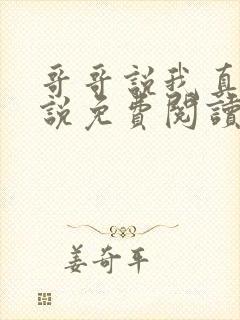 哥哥說我真
說免費閱讀
姜奇平